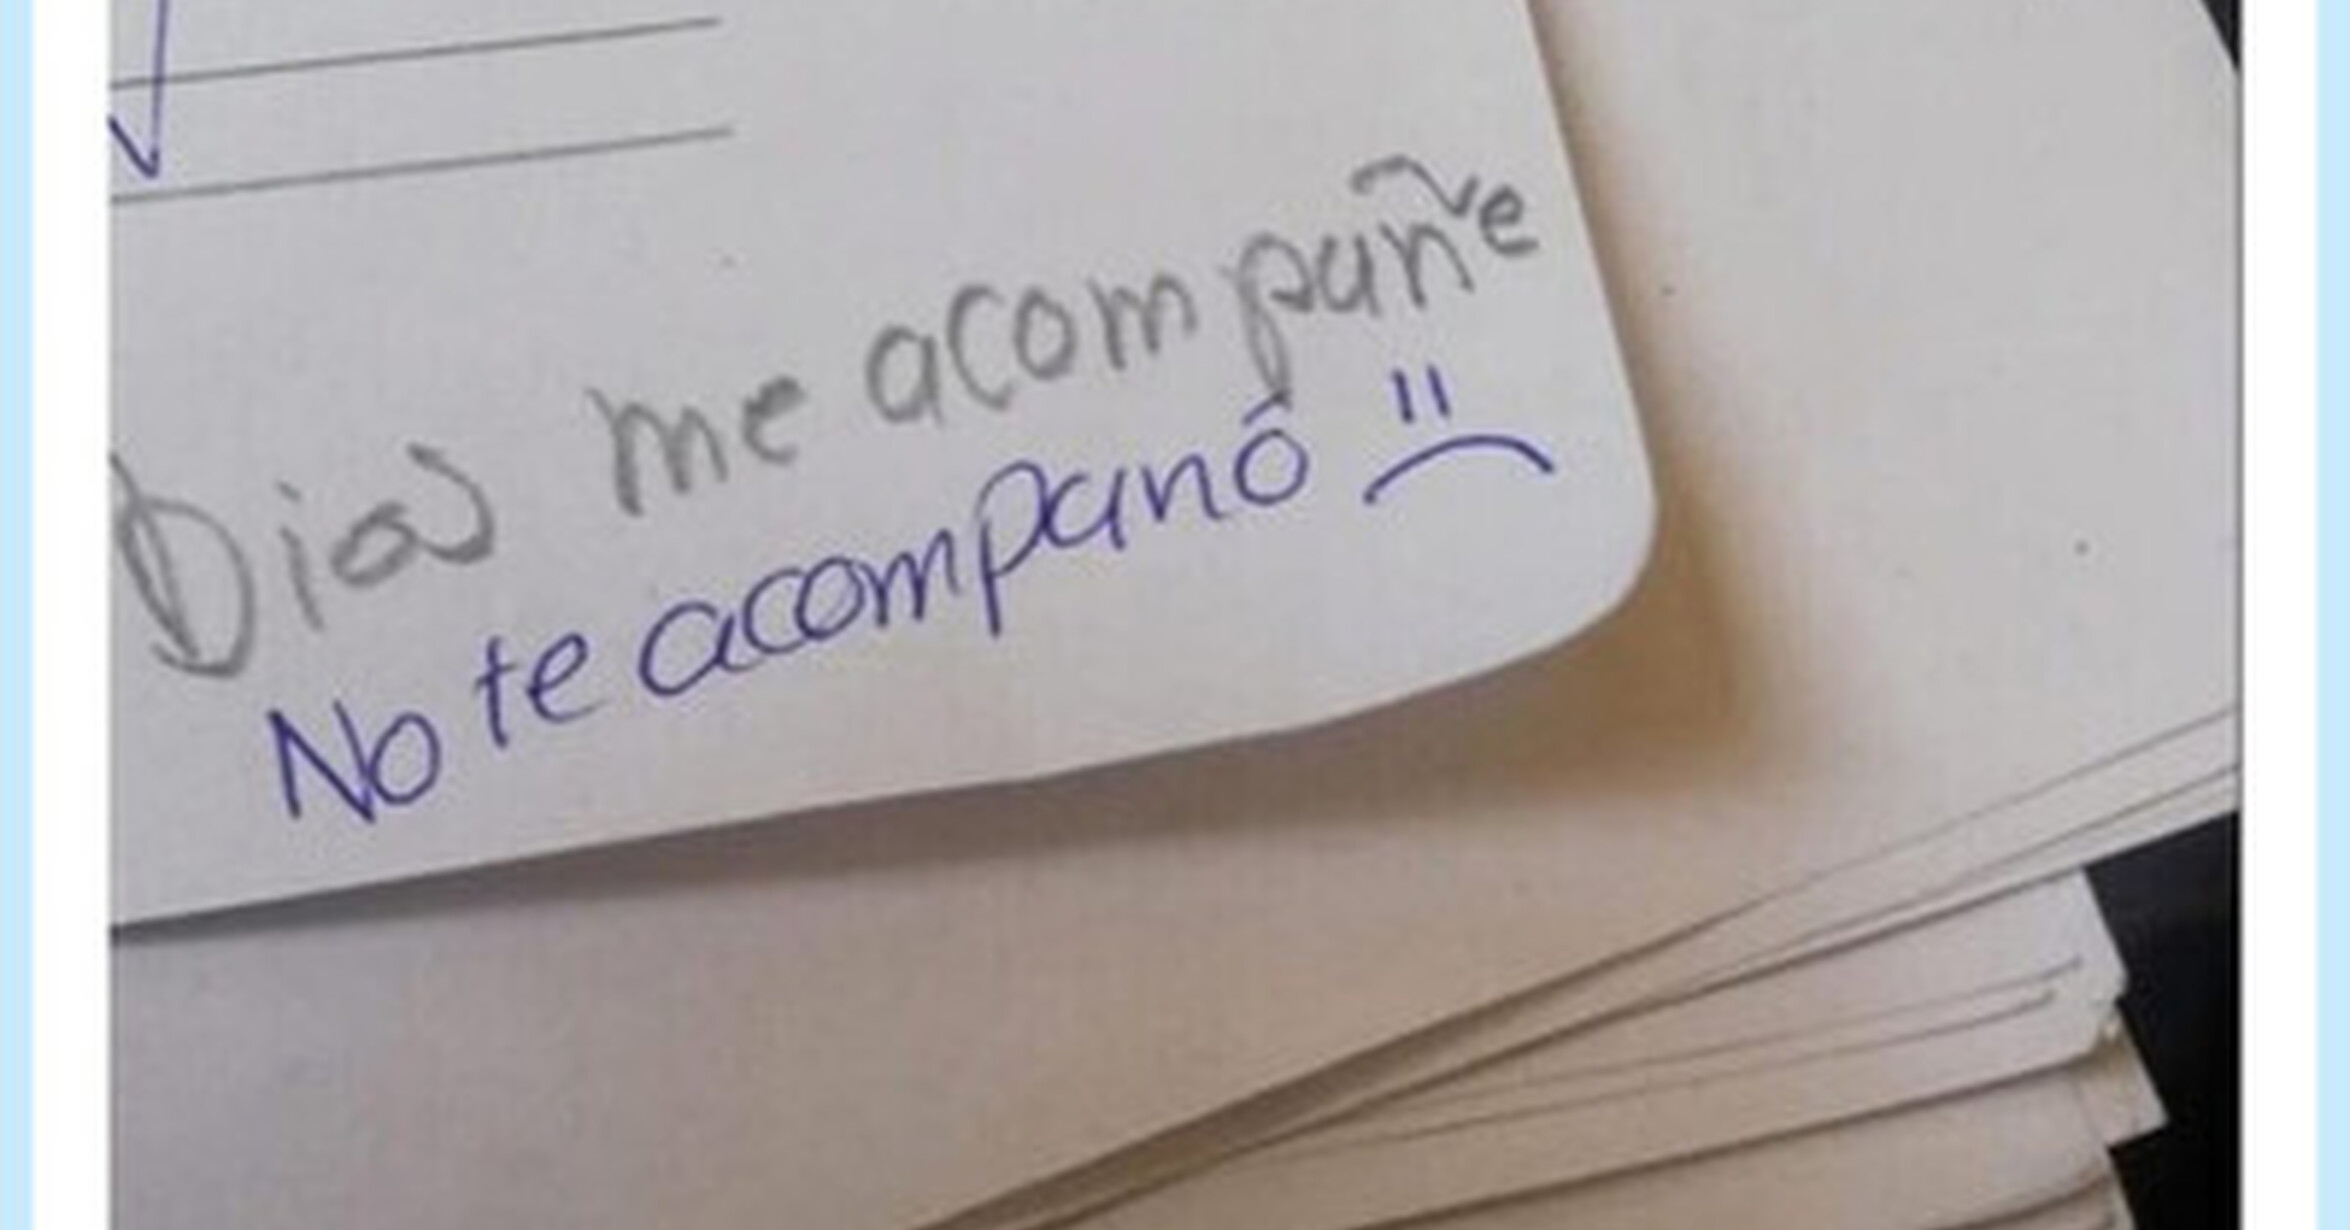 Dios me acompañe
No te acompanó =(